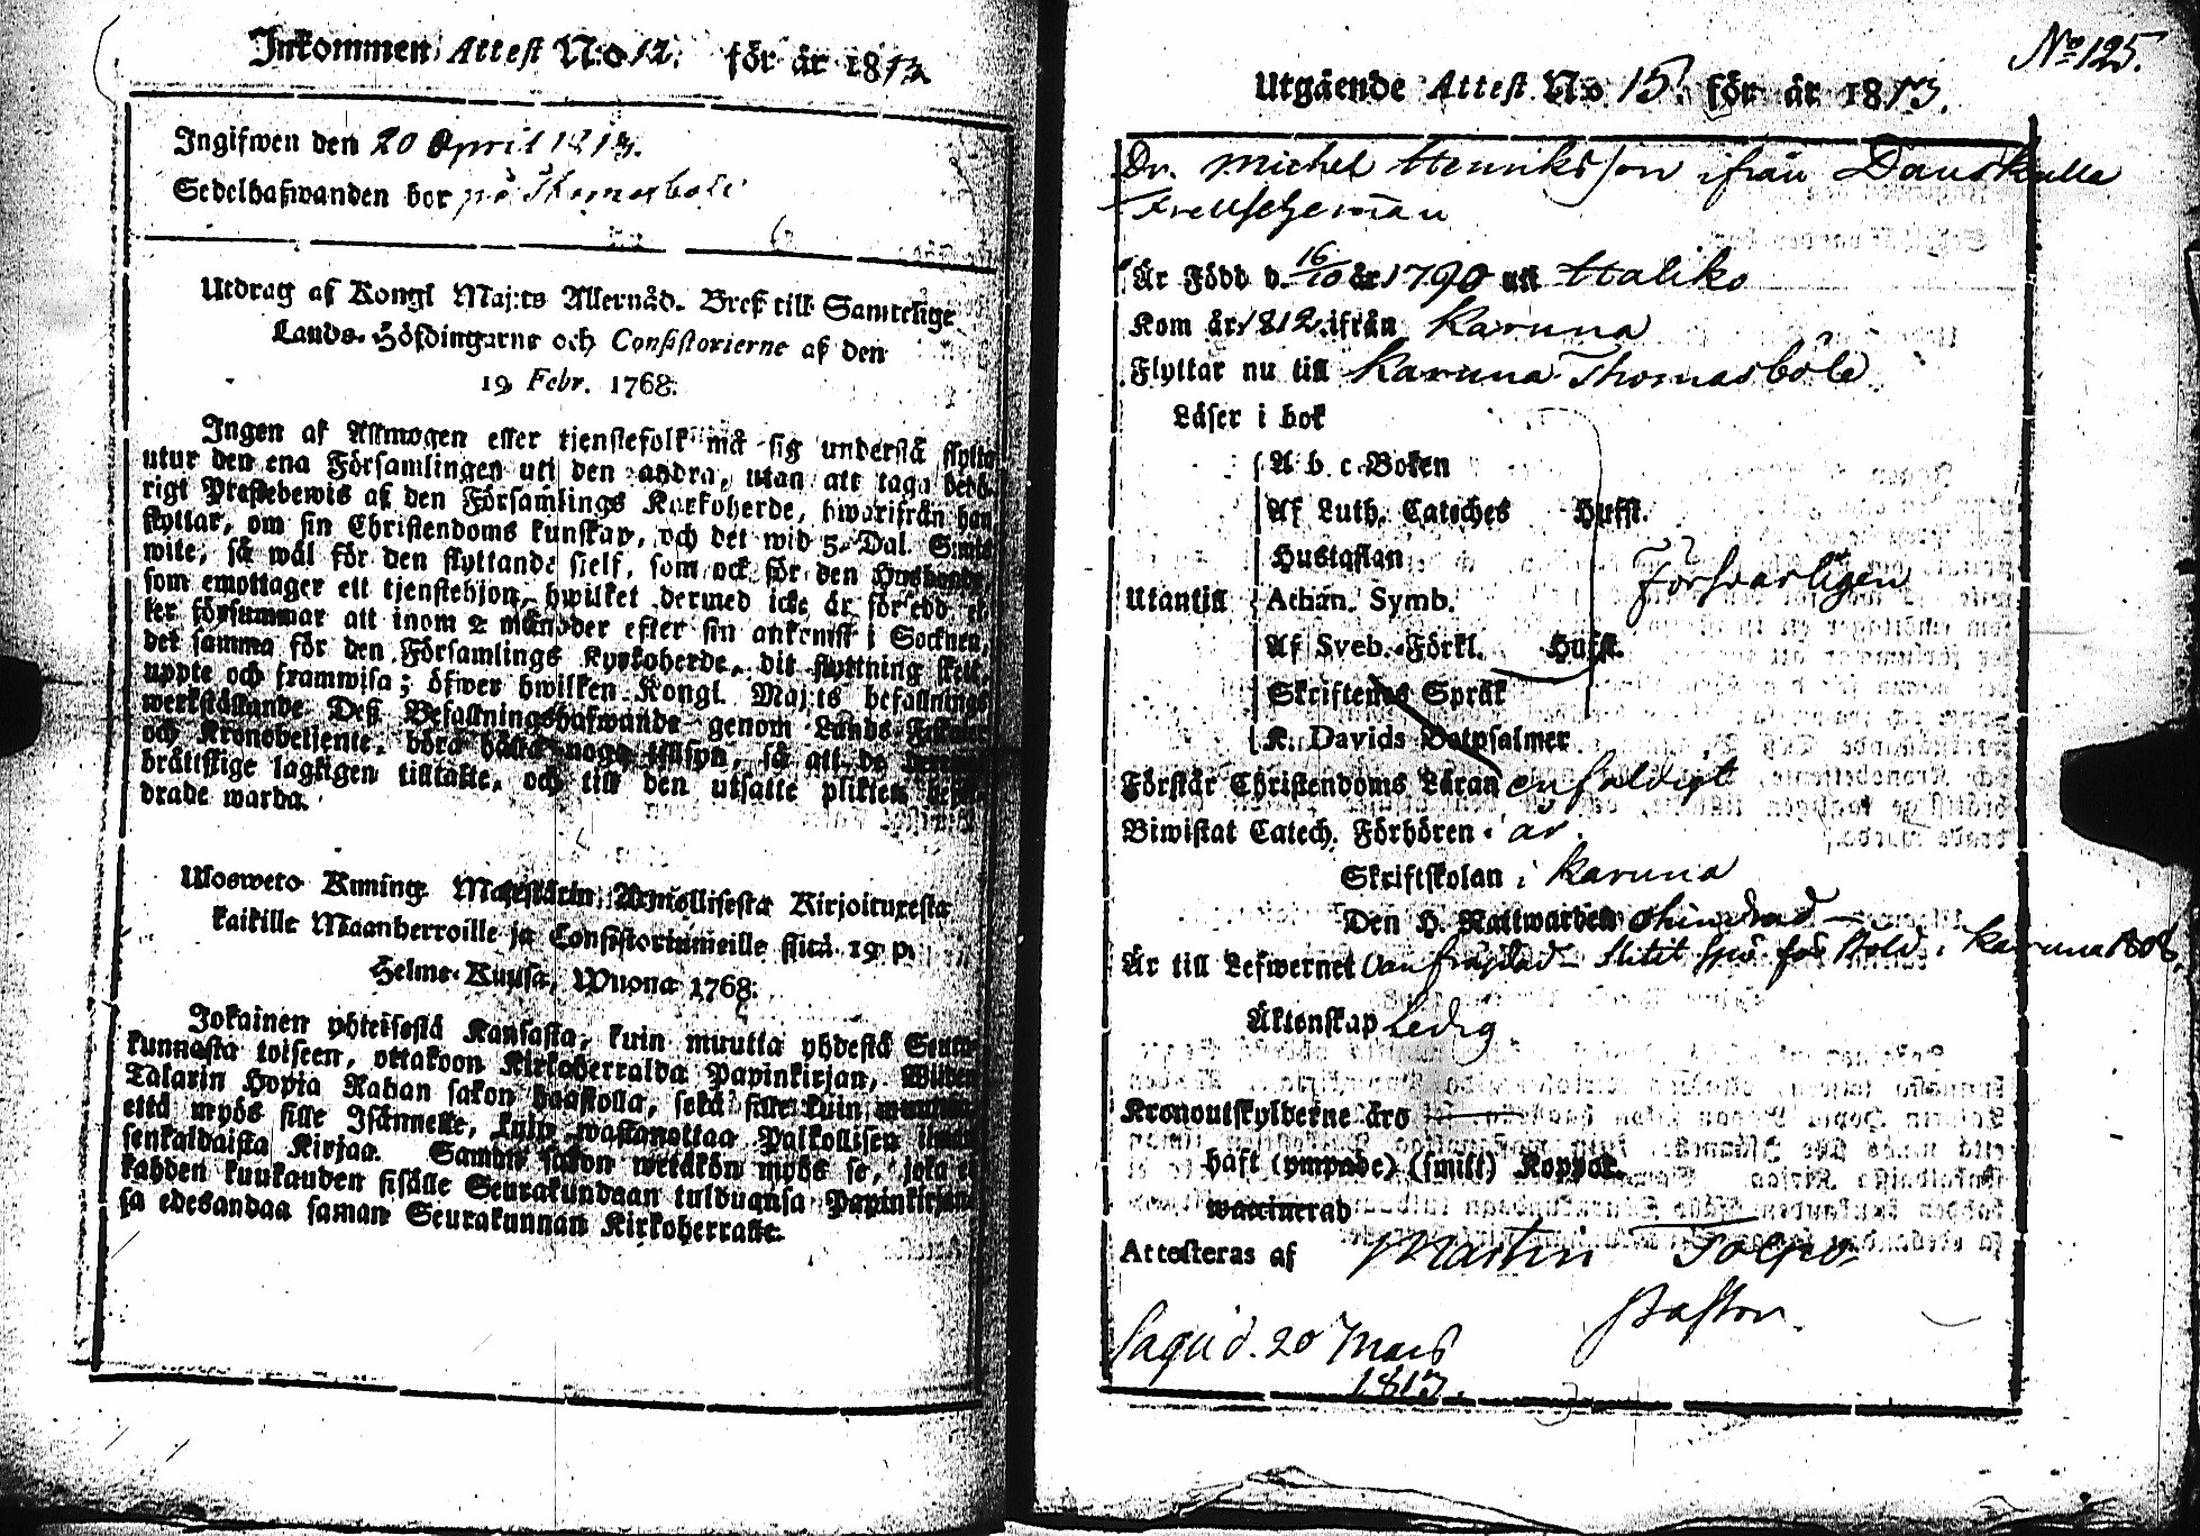 Inkommen Attest N:o 12. för år 1813
Ingifwen den 20 April 1813.
Sedelhafwanden bor på Thomasböle
Utdrag af Kongl Maj:ts Allernåd. Bref till Samtelige
Lands-Höfdingarne och Consistorierne af den
19 Febr. 1768.
Ingen af Allmogen eller tjenstefolk må sig understå flytta
utur den ena Församlingen uti den andra, utan att taga behö-
rigt Prestebewis af den Församlings Kyrkoherde, hwarifrån han
flyttar, om sin Christendoms kunskap, och det wid 5 Dal. S:mts
wite, så wäl för den flyttande sielf, som ock för den Husbonde
som emottager ett tjenstehjon, hwilket dermed icke är försedd el-
ler försummar att inom 2 månader efter sin ankomst i Socknen,
det samma för den Församlings Kyrkoherde, dit flyttning skett,
uppte och framwisa; öfwer hwilken Kongl. Maj:ts befallnings
werkställande Deß Befallningshafwande genom Lands-Fiskaler
och Kronobetjente, böra hafwa noga tillsyn, så att de
brättslige lagligen tilltalte, och till den utsatte plikten
drade warda.
Ulosweto Kuning. Majestätin Armollisesta Kirjoituxesta
kaikille Maanherroille ja Consistoriumeille siitä 19 p.
Helme-Kuusa, Wuona 1768.
Jokainen yhteisestä Kansasta, kuin muutta yhdestä Seura-
kunnasta toiseen, ottakoon Kirkoherralda Papinkirjan, Wiiden
Talarin Hopia Rahan sakon haastolla, sekä sille kuin muutta,
että myös sille Isännelle, kuin wastanottaa Palkollisen ilman
senkaldaista Kirjaa. Saman sakon wetäkön myös se, joka ei
kahden kuukauden sisälle Seurakundaan tulduansa Papinkirjan-
sa edesandaa saman Seurakunnan Kirkoherralle.
No 125.
Utgående Attest No 15. för år 1813.
Dr. Michel Henriksson ifrån Danskulla
Frellsehemman
Är Född d. 16/10 år 1790 uti Haliko
Kom år 1812 ifrån Karuna
Flyttar nu till Karuna Thomasböle
Läser i bok
A b c-Boken
Af Luth. Cateches Hufst.
Hustaflan
Försvarligen
Utantill Athan. Symb.
Af Sveb. Förkl. Hufst.
Skriftenes Språk
K. Davids Botpsalmer
Förstår Christendoms Läran enfaldigt
Biwistat Catech. Förhören i år.
Skriftskolan i Karuna
Den H. Nattwarden ohindrad
Är till Lefwernet Slitit spö för stöld i Karuna
Äktenskap Ledig
Kronoutskylderne äro
haft (ympade) (smitt) Koppor.
waccinerad
Attesteras af Martin Tolpo
Pastor.
Sagu d. 20 Mars
1813.